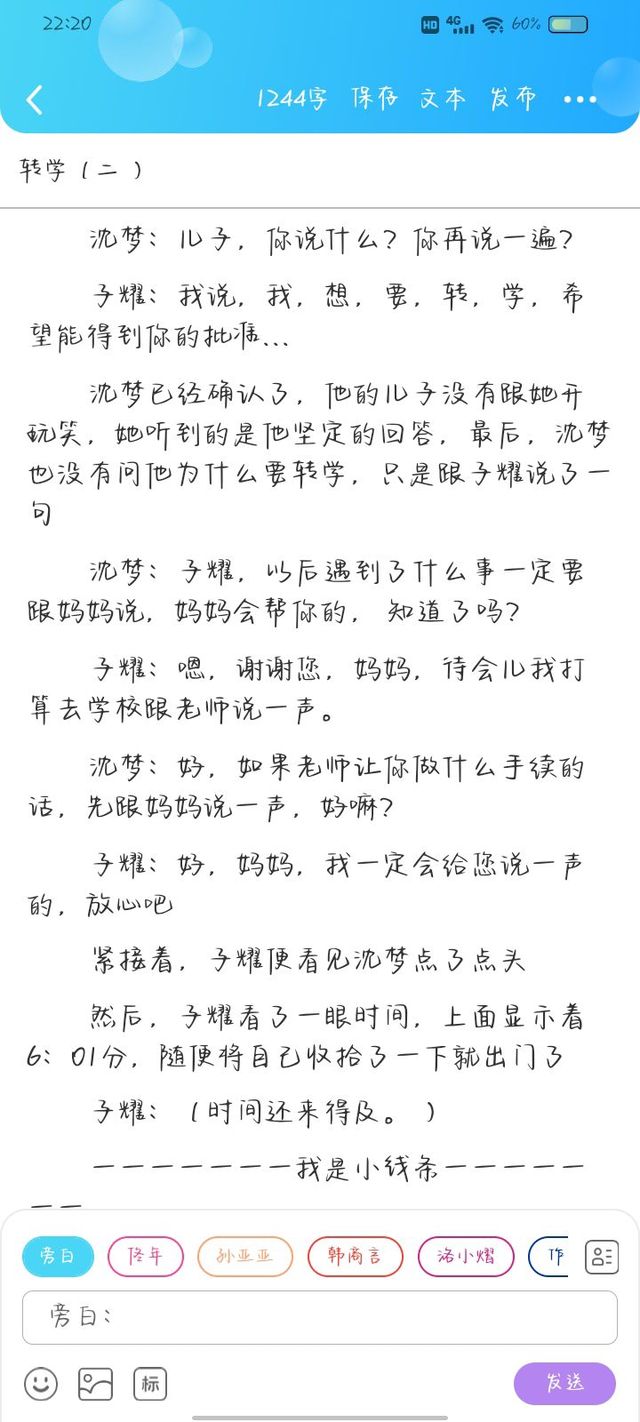 22:20 HD 4G 60%
1244字 保存 文本 发布
转学(二)
沈梦:儿子,你说什么?你再说一遍?
子耀:我说,我,想,要,转,学,希
望能得到你的批准...
沈梦已经确认了,他的儿子没有跟她开
玩笑,她听到的是他坚定的回答,最后,沈梦
也没有问他为什么要转学,只是跟子耀说了一
句
沈梦:子耀,以后遇到了什么事一定要
跟妈妈说,妈妈会帮你的, 知道了吗?
子耀:嗯,谢谢您,妈妈,待会儿我打
算去学校跟老师说一声。
沈梦:好,如果老师让你做什么手续的
话,先跟妈妈说一声,好嘛?
子耀:好,妈妈,我一定会给您说一声
的,放心吧
紧接着,子耀便看见沈梦点了点头
然后,子耀看了一眼时间,上面显示着
6:01分,随便将自己收拾了一下就出门了
子耀:(时间还来得及。)
一一一一一一一我是小线条一一一一一
一一
旁白 佟年 孙亚亚 韩商言 洛小熠
旁白:
标 发送